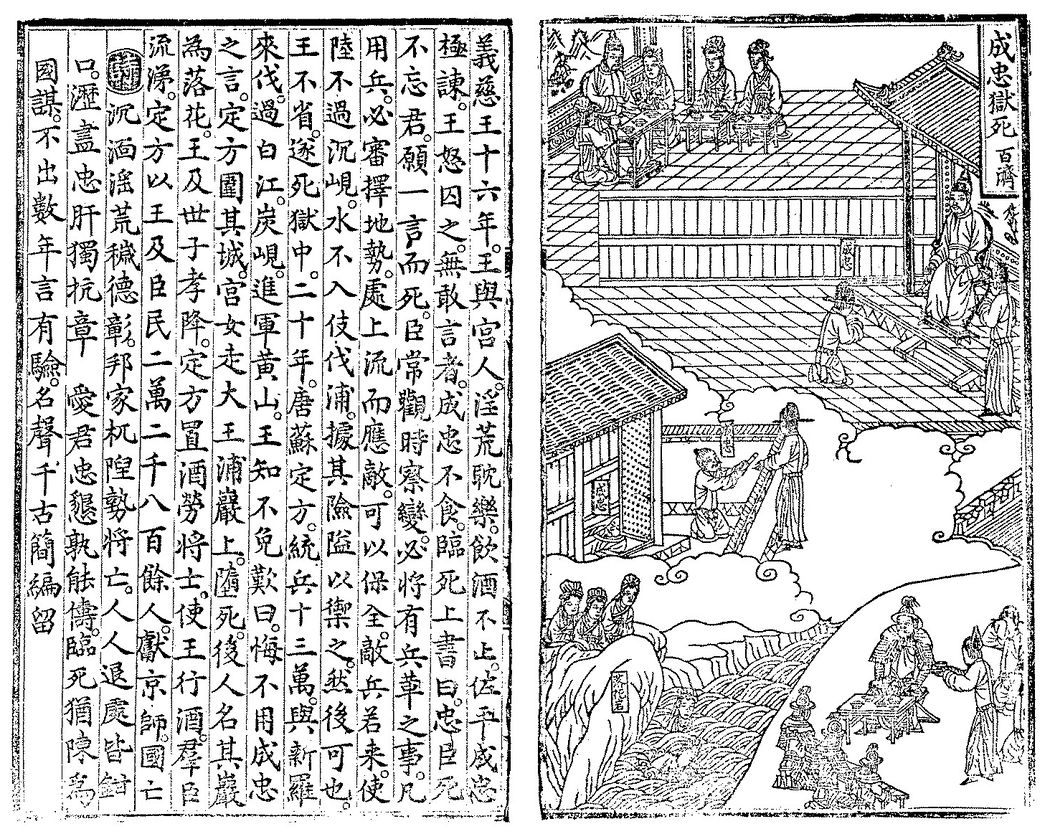 成忠獄死 百濟
成忠
成忠
落花岩
義慈王十六年。王與宮人。淫荒耽樂。飲酒不止。佐平成忠
極諫。王怒囚之。無敢言者。成忠不食。臨死上書曰。忠臣死
不忘君。願一言而死。臣常觀時察變。必將有兵革之事。凡
用兵。必審擇地勢。處上流而應敵。可以保全。敵兵若来。使
陸不過沉峴。水不入伎伐浦。據其險隘以禦之。然後可也。
王不省。遂死獄中。二十年。唐蘇定方。統兵十三萬。與新羅
來伐。過白江。炭峴。進軍黃山。王知不免。歎曰。悔不用成忠
之言。定方圍其城。宮女走大王浦巖上。墮死。後人名其巖
為落花。王及世子孝降。定方置酒勞將士。使王行酒。羣臣
流涕。定方以王及臣民二萬二千八百餘人。獻京師。國亡
詩 沉湎淫荒穢德彰。邦家杌隉勢將亡。人人退處皆鉗
口。瀝盡忠肝獨抗章 愛君忠懇孰能儔。臨死猶陳爲
國謀。不出數年言有驗。名聲千古簡編留